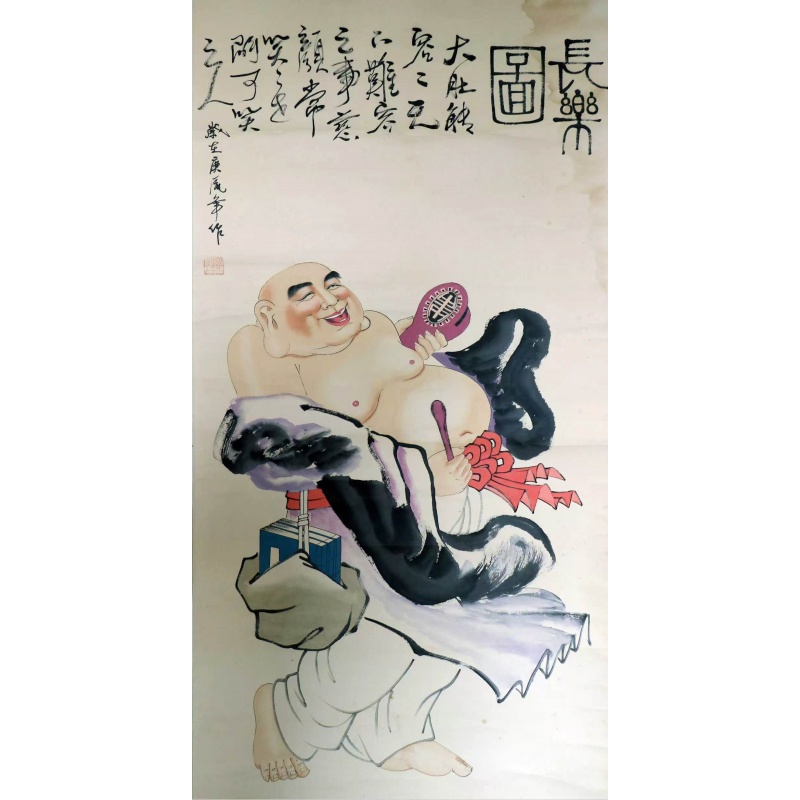 長樂
圖
大肚能
容〻天
下難容
之事慈
顏常
笑〻世
間可笑
之人
歲在庚辰年作